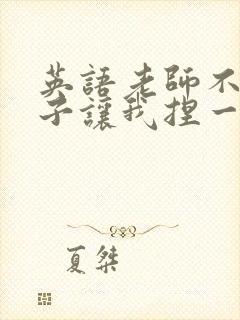 英語老師不
子讓我捏一
夏桀